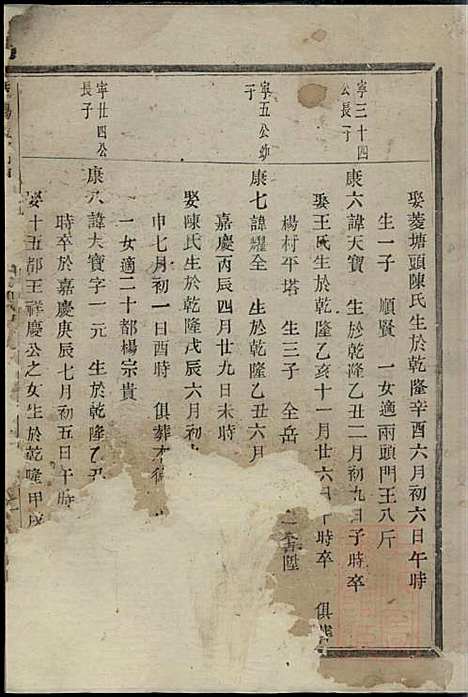 娶菱塘頭陳氏生於乾隆辛酉六月初六日午時
生一子 順賢 一女適兩頭門王八斤
寧三十四
公長子
康六諱天寶 生於乾隆乙丑二月初九日子時卒
娶王氏生於乾隆乙亥十一月廿六日午時卒 俱葬
楊村平塔 生三子 全岳
寧五公幼
子
康七諱耀全 生於乾隆乙丑六月
嘉慶丙辰四月廿九日未時
娶陳氏生於乾隆戊辰六月初
申七月初一日酉時 俱葬本
一女適二十都楊宗貴
寧廿四公
長子
康八諱大寶字一元 生於乾隆乙丑
時卒於嘉慶庚辰七月初五日午時
娶十五都王祥慶公之女生於乾隆甲戌